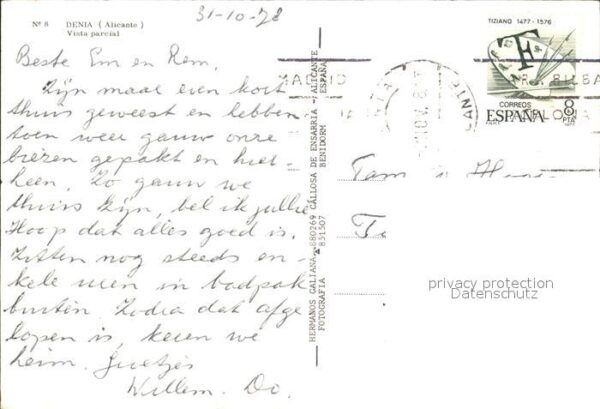 31-10-78
Nº 8 DENIA (Alicante)
Vista parcial
Beste Em en Rem,
Zijn maar even kort
thuis geweest en hebben
toen weer gauw onze
biezen gepakt en hier-
heen. Zo gauw we
thuis zijn, bel ik jullie
Hoop dat alles goed is.
Zitten nog steeds en-
kele uren in badpak
buiten. Zodra dat afge
lopen is, keren we
heim. Groetjes
Willem. Do.
HERMANOS GALIANA 880269 CALLOSA DE ENSARRIA - ALICANTE
FOTOGRAFIA 851507 BENIDORM ESPAÑA
TIZIANO 1477-1576
CORREOS
ESPAÑA
8 PTA
MADRID
BILBAO
Fam
privacy protection
Datenschutz